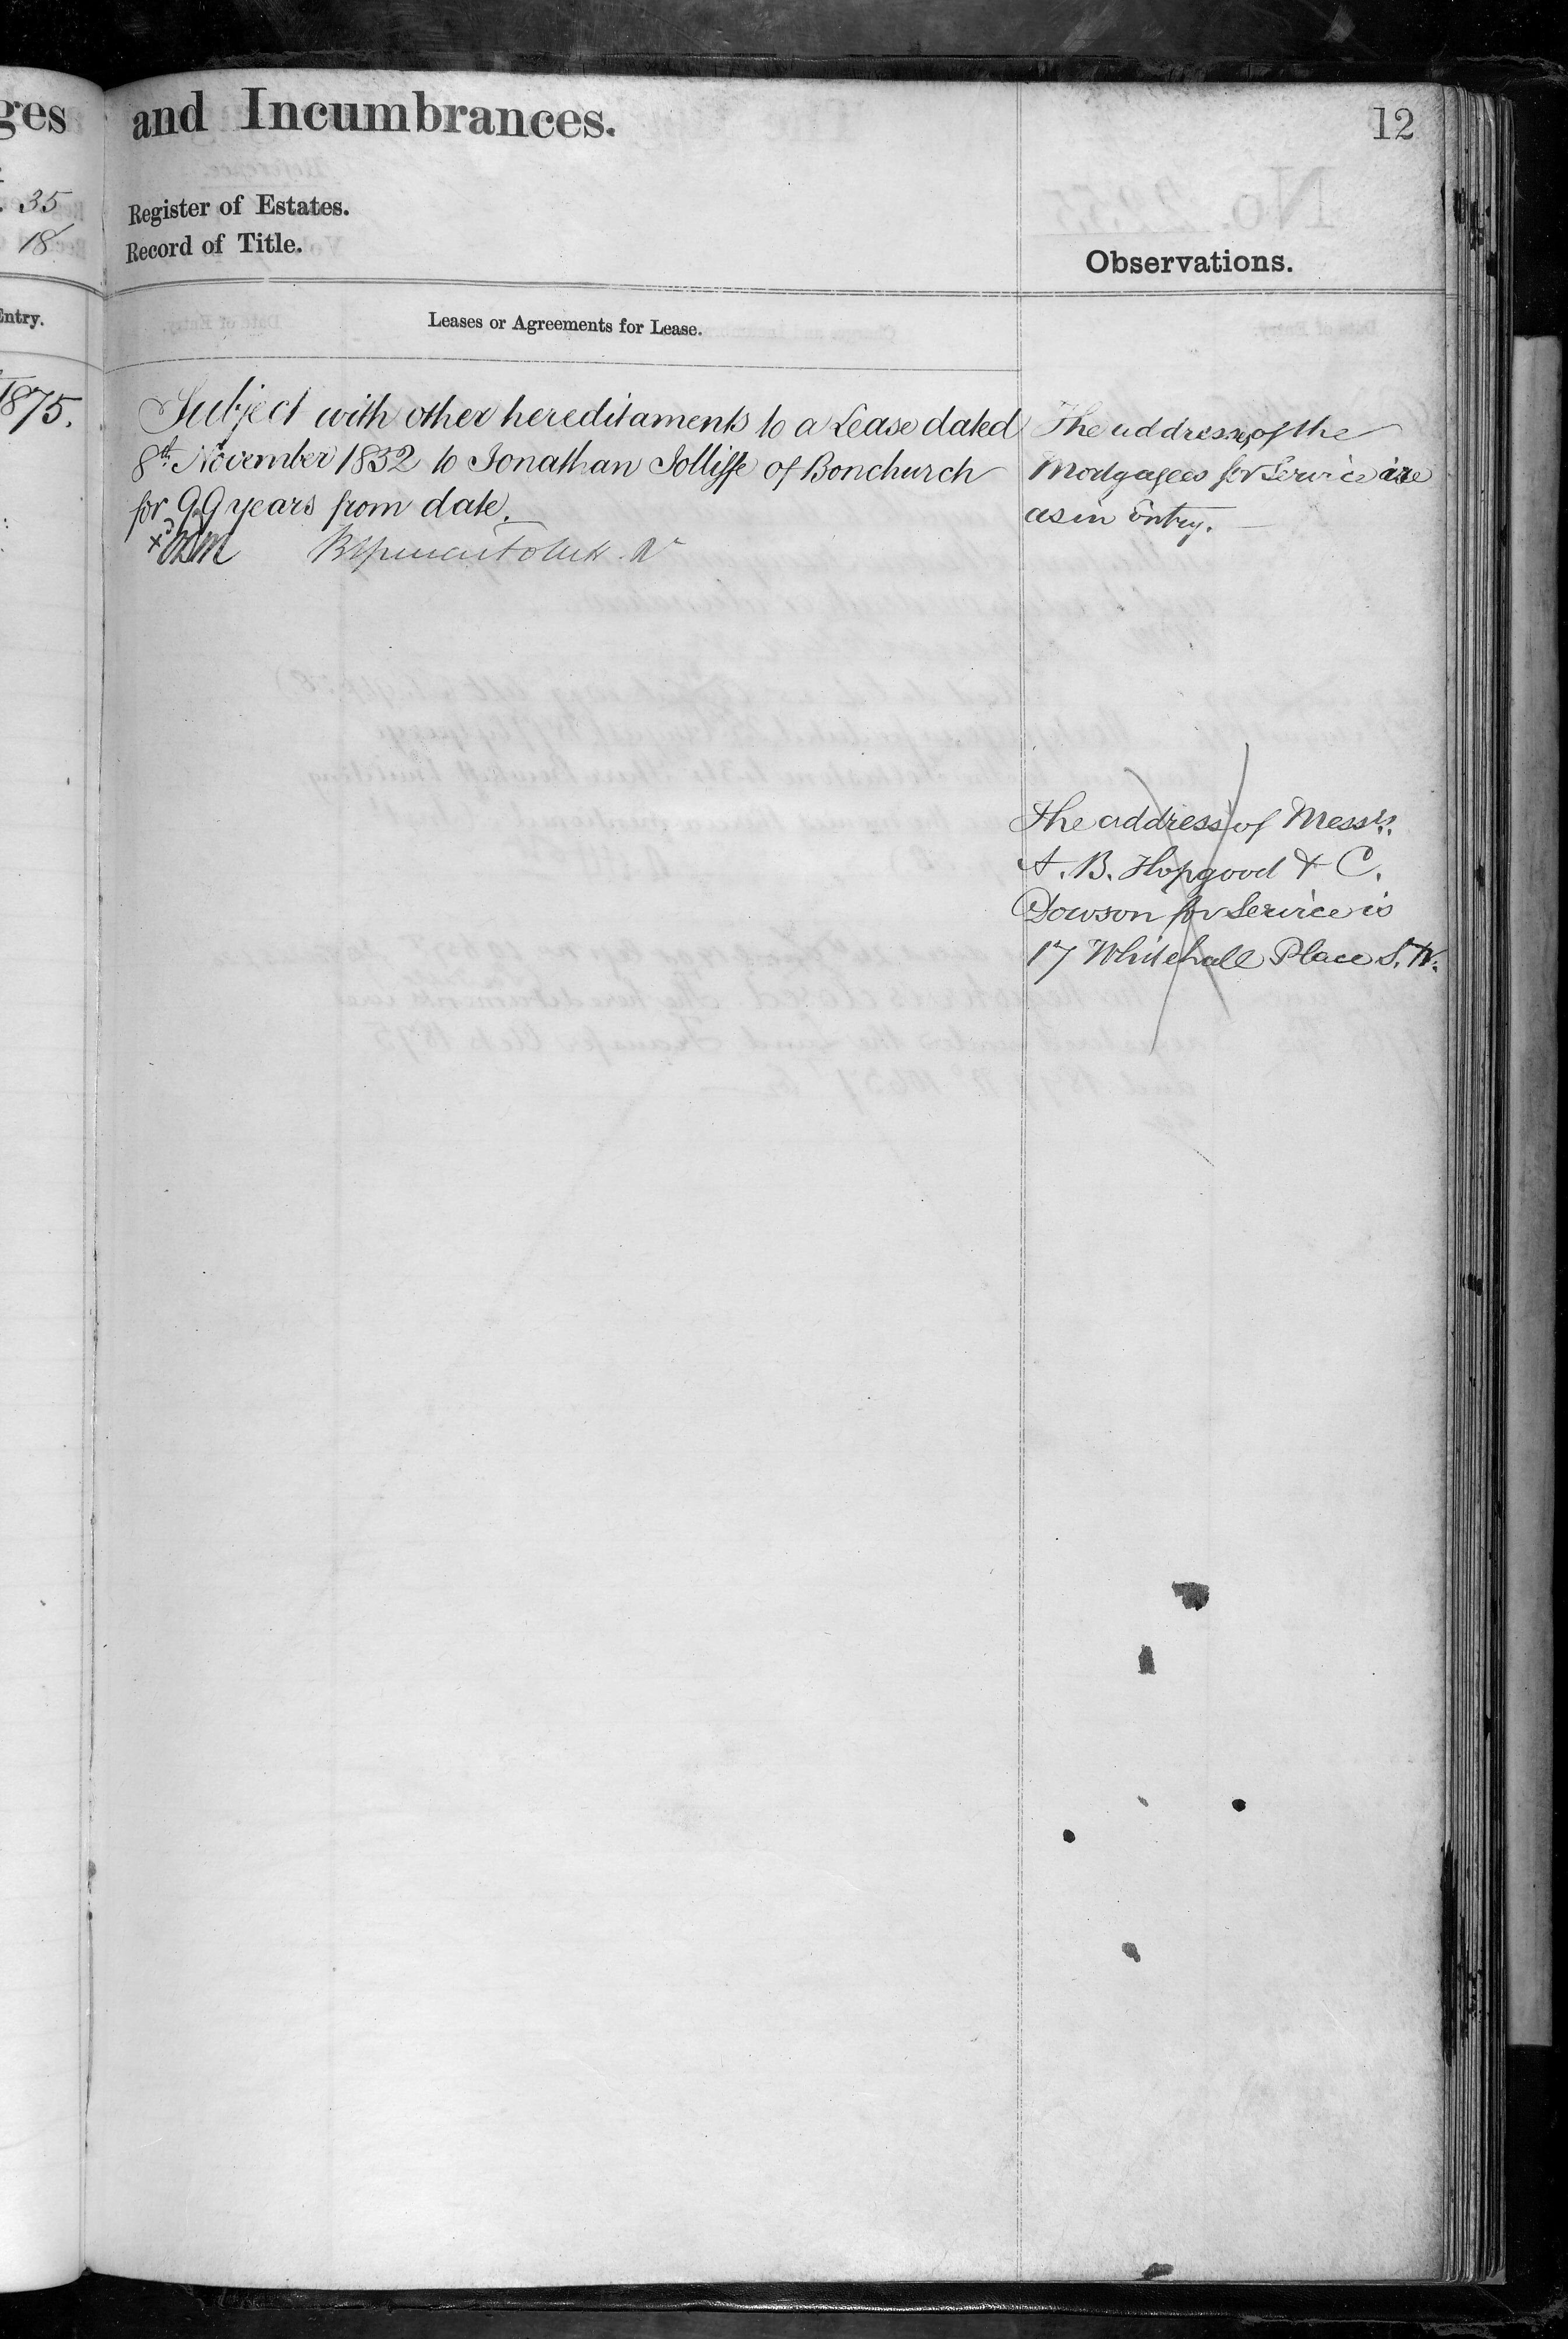 ges
35
18
Entry.
1875.
and Incumbrances.
12
Register of Estates.
Record of Title.
Observations.
Leases or Agreements for Lease.
Subject with other hereditaments to a Lease dated
8th November 1832 to Jonathan Jolliffe of Bonchurch
for 99 years from date.
The address of the
Mortgagees for Service are
as in Entry.
The address of Messrs.
A. B. Hopgood & C.
Dowson for Service is
17 Whitehall Place S.W.